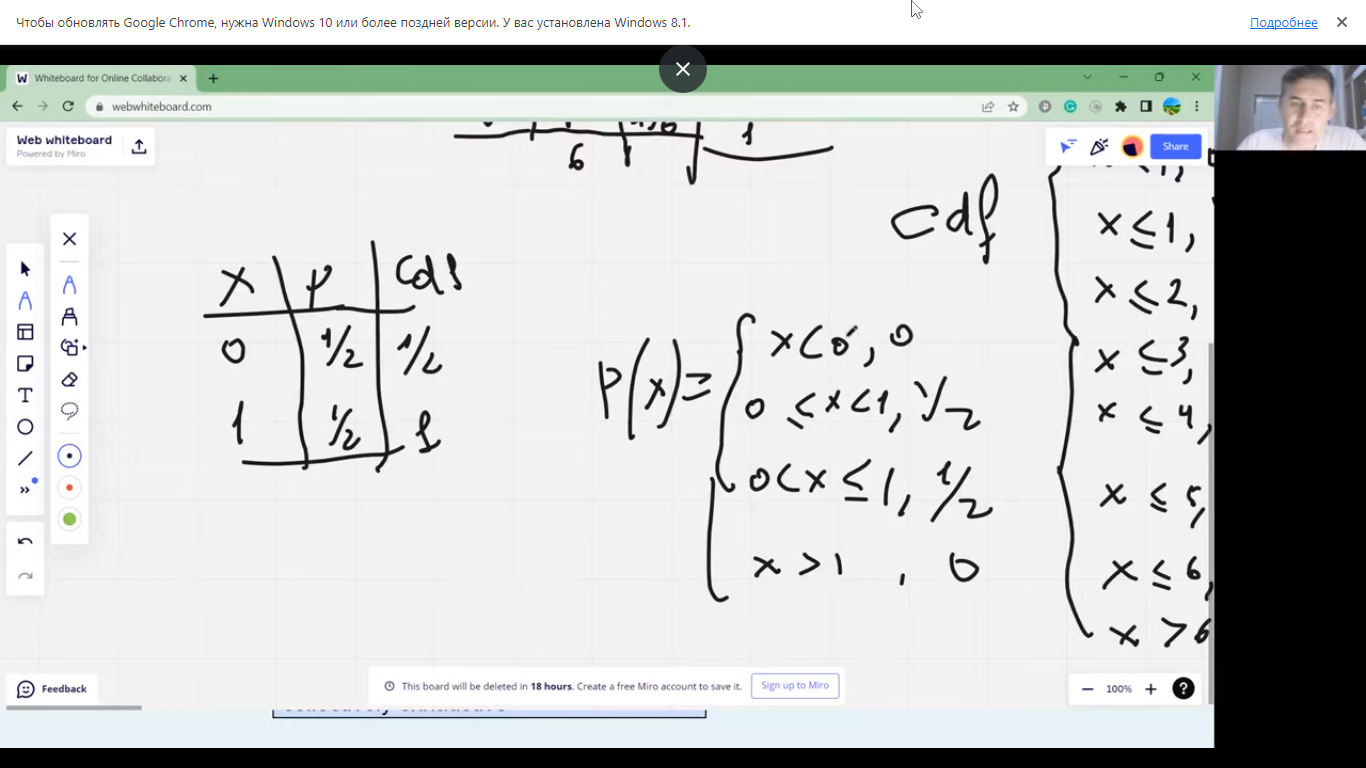 Чтобы обновлять Google Chrome, нужна Windows 10 или более поздней версии. У вас установлена Windows 8.1.
Подробнее
Whiteboard for Online Collabora
webwhiteboard.com
Web whiteboard
Powered by Miro
Share
6
1
cdf
x p cdf
0 1/2 1/2
1 1/2 1
P(x)=
x<0, 0
0 ≤x<1, 1/2
0<x ≤1, 1/2
x >1 , 0
x ≤1,
x ≤2,
x ≤3,
x ≤ 4,
x ≤ 5,
x ≤ 6,
x > 6
T
Feedback
This board will be deleted in 18 hours. Create a free Miro account to save it.
Sign up to Miro
100%
?